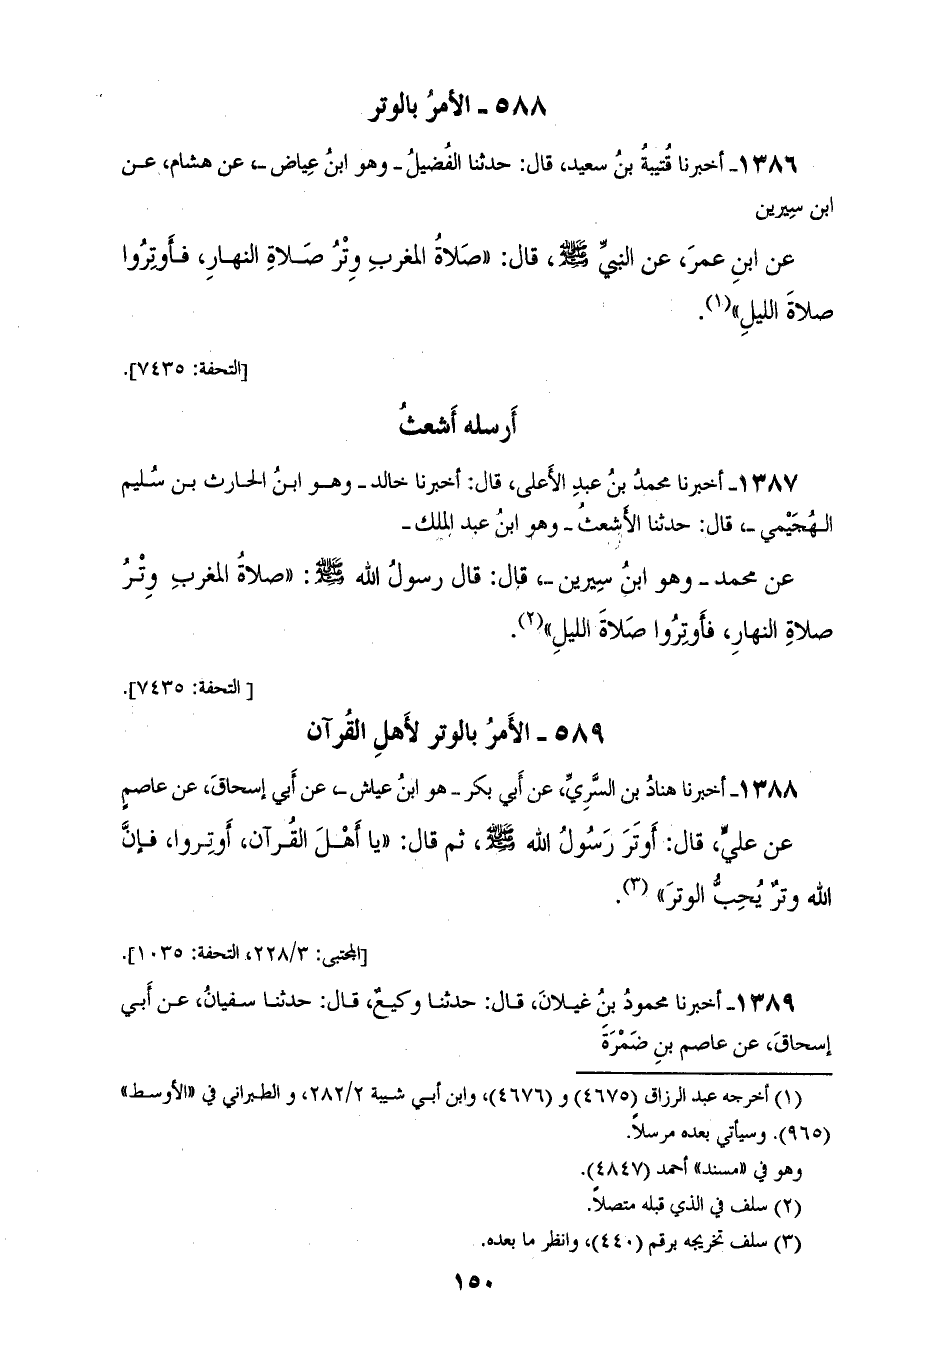 ٥٨٨ ـ الأمرُ بالوتر
١٣٨٦ـ أخبرنا قُتيبةُ بنُ سعيد، قال: حدثنا الفُضيلُ ـ وهو ابنُ عِياض ـ، عن هشام، عـن
ابن سِيرين
عن ابنِ عمرَ، عن النبيِّ ﷺ، قال: «صَلاةُ المغربِ وِتْرُ صَـلاةِ النهـارِ، فـأَوتِرُوا
صلاةَ الليلِ»(١).
[التحفة: ٧٤٣٥].
أَرسله أَشعثُ
١٣٨٧ـ أخبرنا محمدُ بنُ عبدِ الأَعلى، قال: أخبرنا خالد ـ وهـو ابـنُ الحـارث بـن سُـليم
الـهُجَيْمي ـ، قال: حدثنا الأَشعثُ ـ وهو ابنُ عبد الملك ـ
عن محمد ـ وهو ابنُ سِيرين ـ، قال: قال رسولُ الله ﷺ: «صلاةُ المغربِ وِتْـرُ
صلاةِ النهارِ، فأَوتِرُوا صَلاةَ الليلِ»(٢).
[ التحفة: ٧٤٣٥].
٥٨٩ ـ الأَمرُ بالوتر لأَهلِ القُرآن
١٣٨٨ـ أخبرنا هنادُ بن السَّريِّ، عن أَبي بكر ـ هو ابنُ عياش ـ، عن أَبي إسحاقَ، عن عاصمٍ
عن عليٍّ، قال: أَوتَرَ رَسُولُ الله ﷺ، ثم قال: «يا أَهْـلَ القُـرآن، أَوتِـروا، فـإنَّ
الله وترٌ يُحِبُّ الوترَ» (٣).
[المجتبى: ٢٢٨/٣، التحفة: ١٠١٣٥].
١٣٨٩ـ أخبرنا محمودُ بنُ غَيلانَ، قـال: حدثنـا وكيـعٌ، قـال: حدثنـا سـفيانُ، عـن أَبـي
إسحاقَ، عن عاصم بنِ ضَمْرَةَ
(١) أخرجه عبد الرزاق (٤٦٧٥) و (٤٦٧٦)، وابن أبـي شيبة ٢٨٢/٢، و الطبراني في «الأوسط»
(٩٦٥). وسيأتي بعده مرسلاً.
وهو في «مسند» أحمد (٤٨٤٧).
(٢) سلف في الذي قبله متصلاً.
(٣) سلف تخريجه برقم (٤٤٠)، وانظر ما بعده.
١٥٠